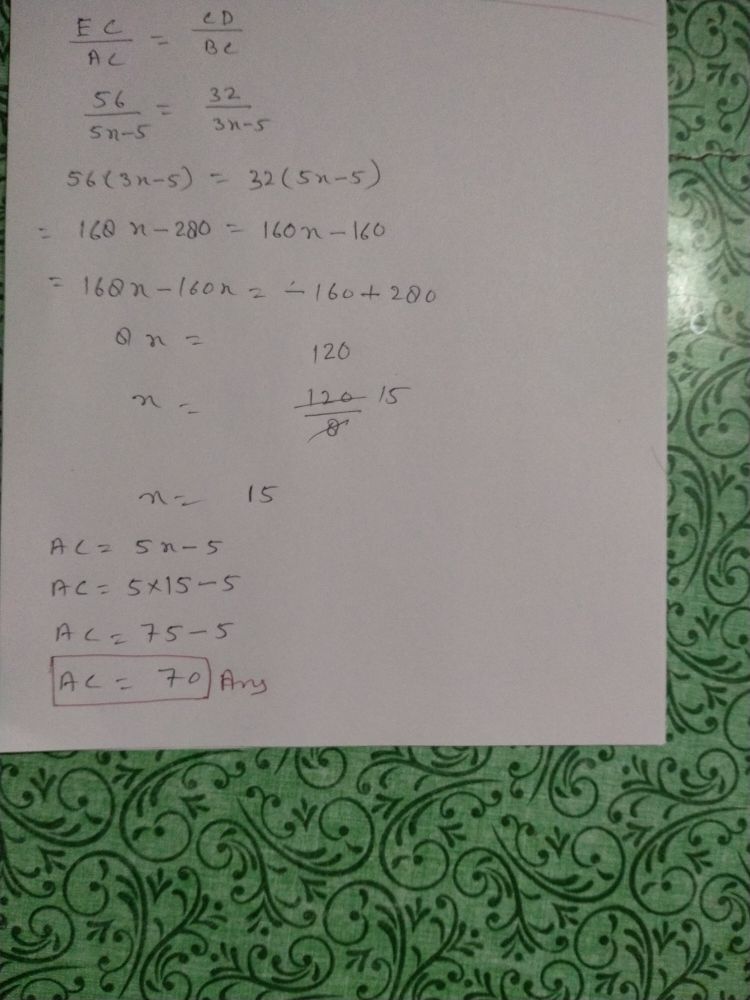 EC/AC = CD/BC
56/5x-5 = 32/3x-5
56(3x-5) = 32(5x-5)
= 168x-280 = 160x-160
= 168x-160x = -160+280
8x = 120
x = 120/8 15
x = 15
AC = 5x-5
AC = 5×15-5
AC = 75-5
AC = 70 Ans